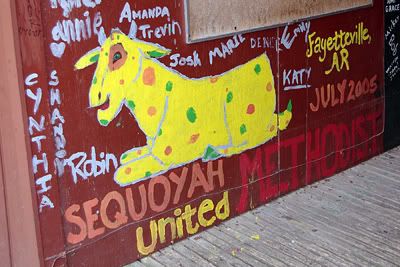 annie
AMANDA
Trevin
JOSH
MARIE
DENCE
Emmy
Fayetteville,
AR
KATY
JULY 2005
CYNTHIA
SHANDI
Robin
SEQUOYAH
United METHODIST
GRACE